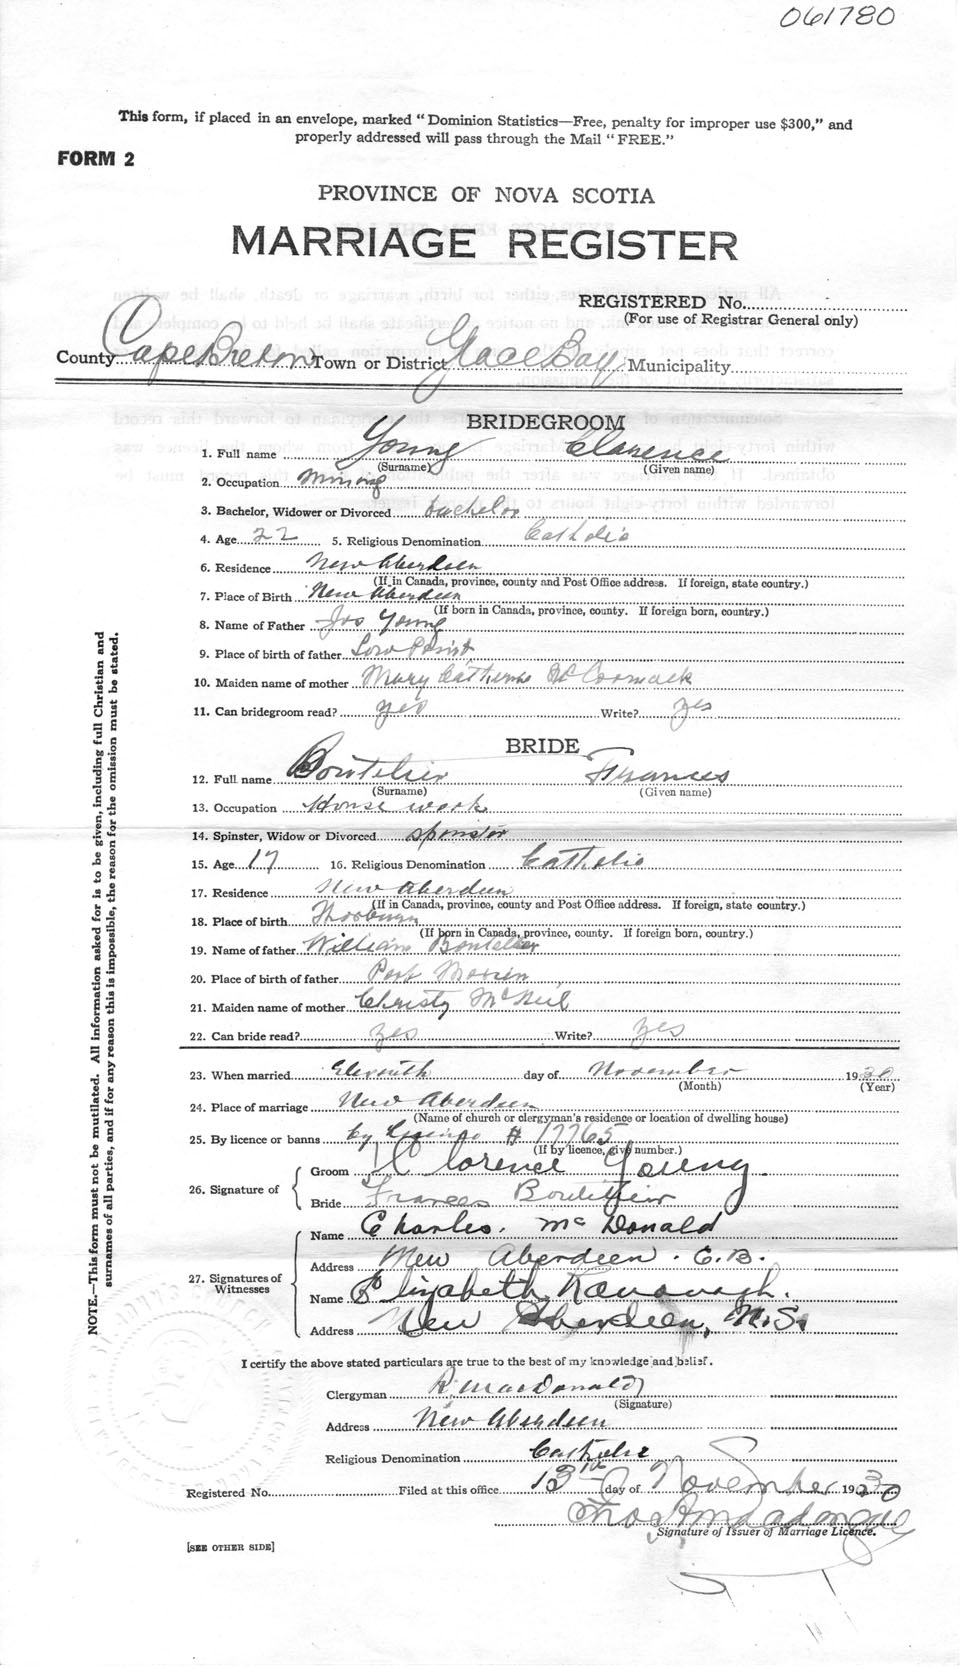 061780
This form, if placed in an envelope, marked "Dominion Statistics—Free, penalty for improper use $300," and
properly addressed will pass through the Mail "FREE."
FORM 2
PROVINCE OF NOVA SCOTIA
MARRIAGE REGISTER
REGISTERED No.
(For use of Registrar General only)
County Cape Breton Town or District Glace Bay Municipality
BRIDEGROOM
1. Full name Young Clarence
(Surname) (Given name)
2. Occupation Mining
3. Bachelor, Widower or Divorced bachelor
4. Age 22 5. Religious Denomination Catholic
6. Residence New Aberdeen
(If in Canada, province, county and Post Office address. If foreign, state country.)
7. Place of Birth New Aberdeen
(If born in Canada, province, county. If foreign born, country.)
8. Name of Father Jos Young
9. Place of birth of father Low Point
10. Maiden name of mother Mary Catherine McCormack
11. Can bridegroom read? yes Write? yes
BRIDE
12. Full name Boutelier Frances
(Surname) (Given name)
13. Occupation House work
14. Spinster, Widow or Divorced sponster
15. Age 17 16. Religious Denomination Catholic
17. Residence New Aberdeen
(If in Canada, province, county and Post Office address. If foreign, state country.)
18. Place of birth
(If born in Canada, province, county. If foreign born, country.)
19. Name of father William Boutelier
20. Place of birth of father Port Morien
21. Maiden name of mother Christy McNeil
22. Can bride read? yes Write? yes
23. When married Eleventh day of November 1930
(Month) (Year)
24. Place of marriage New Aberdeen
(Name of church or clergyman's residence or location of dwelling house)
25. By licence or banns by # 17765
(If by licence, give number.)
26. Signature of
Groom Clarence Young
Bride Frances Boutelier
27. Signatures of Witnesses
Name Charles. McDonald
Address New Aberdeen. C.B.
Name Elizabeth Kavanagh.
Address New Aberdeen, N.S.
I certify the above stated particulars are true to the best of my knowledge and belief.
Clergyman R. MacDonald
(Signature)
Address New Aberdeen
Religious Denomination Catholic
Registered No. Filed at this office 13th day of November 1930
Signature of Issuer of Marriage Licence.
[SEE OTHER SIDE]
NOTE.—This form must not be mutilated. All information asked for is to be given, including full Christian and
surnames of all parties, and if for any reason this is impossible, the reason for the omission must be stated.